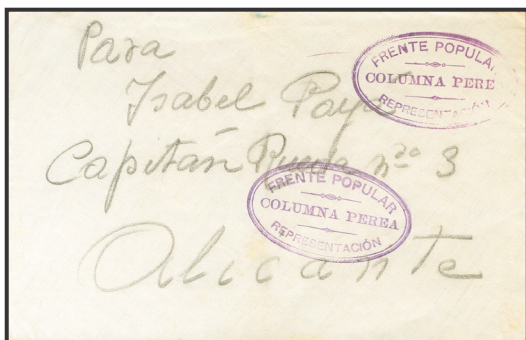 Para
Isabel Payá
Capitán Rueda nº 3
Alicante
FRENTE POPULA
COLUMNA PERE
REPRESENTACIÓN
FRENTE POPULAR
COLUMNA PEREA
REPRESENTACIÓN